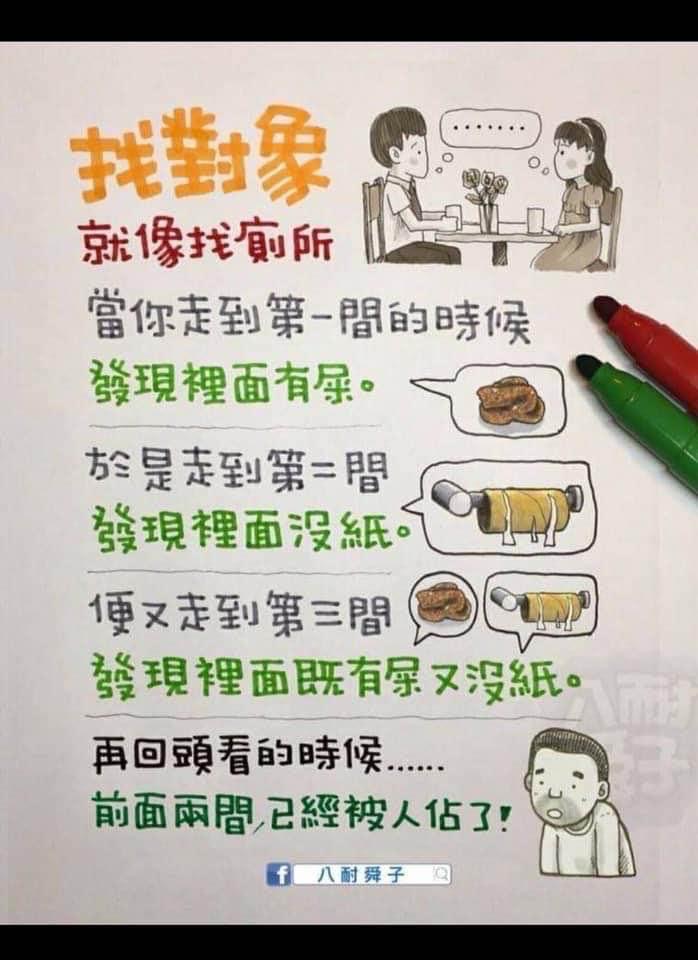 找對象
就像找廁所
.......
當你走到第一間的時候
發現裡面有屎。
於是走到第二間
發現裡面沒紙。
便又走到第三間
發現裡面既有屎又沒紙。
再回頭看的時候......
前面兩間,已經被人佔了!
八耐舜子
f 八耐舜子